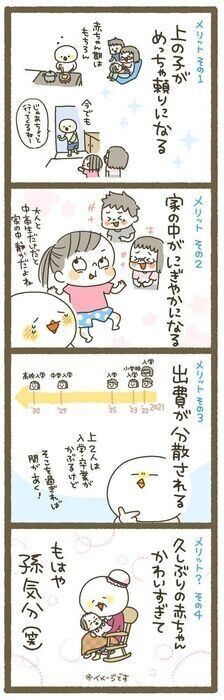 メリット その1
上の子が
めっちゃ頼りになる
赤ちゃん期は
もちろん
今でも
じゃあちょっと
行ってくるねー
メリット その2
家の中がにぎやかになる
大人と
中高生だけだと
家の中 静かだよね
メリット その3
出費が分散される
高校入学
中学入学
入学
小学校
入学
入学
'32
'29
'25
'23
'22
2021
上2人は
入学・卒業が
かぶるけど
そこを過ぎれば
間があく!
メリット? その4
久しぶりの赤ちゃん
かわいすぎて
もはや
孫気分(笑)
※イメージです